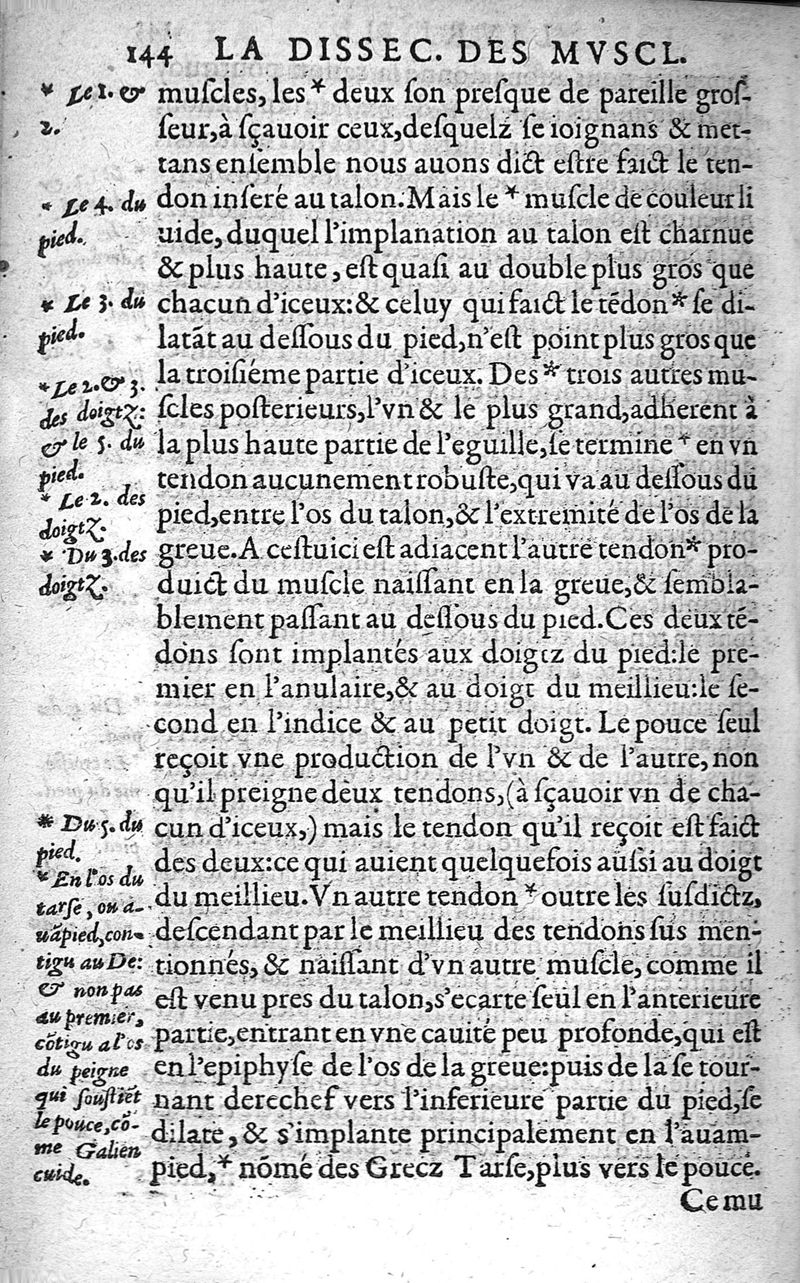 144 LA DISSEC. DES MVSCL.
* Le 1. &
2.
* Le 4. du
pied.
* Le 3. du
pied.
* Le 2. & 3.
des doigtz:
& le 5. du
pied.
* Le 2. des
doigtz.
* Du 3. des
doigtz.
* Du 5. du
pied.
* En l'os du
tarse, ou a-
uãpied, con-
tigu au De:
& non pas
au premier,
cõtigu a l'os
du peigne
qui soustiẽt
le pouce, cõ-
me Galien
cuide.
muſcles, les * deux ſon preſque de pareille groſ-
ſeur, à ſçauoir ceux, deſquelz ſe ioignans & met-
tans enſemble nous auons dict eſtre faict le ten-
don inſeré au talon. Mais le * muſcle de couleur li
uide, duquel l'implanation au talon eſt charnue
& plus haute, eſt quaſi au double plus gros que
chacun d'iceux: & celuy qui faict le tẽdon * ſe di-
latãt au deſſous du pied, n'eſt point plus gros que
la troiſiéme partie d'iceux. Des * trois autres mu-
ſcles poſterieurs, l'vn & le plus grand, adherent à
la plus haute partie de l'eguille, ſe termine * en vn
tendon aucunement robuſte, qui va au deſſous du
pied, entre l'os du talon, & l'extremité de l'os de la
greue. A ceſtuici eſt adiacent l'autre tendon * pro-
duict du muſcle naiſſant en la greue, & ſembla-
blement paſſant au deſſous du pied. Ces deux tẽ-
dons ſont implantés aux doigtz du pied: le pre-
mier en l'anulaire, & au doigt du meillieu: le ſe-
cond en l'indice & au petit doigt. Le pouce ſeul
reçoit vne production de l'vn & de l'autre, non
qu'il preigne deux tendons, (à ſçauoir vn de cha-
cun d'iceux,) mais le tendon qu'il reçoit eſt faict
des deux: ce qui auient quelquefois auſsi au doigt
du meillieu. Vn autre tendon * outre les ſuſdictz,
deſcendant par le meillieu des tendons ſus men-
tionnés, & naiſſant d'vn autre muſcle, comme il
eſt venu pres du talon, s'ecarte ſeul en l'anterieure
partie, entrant en vne cauité peu profonde, qui eſt
en l'epiphyſe de l'os de la greue: puis de la ſe tour-
nant derechef vers l'inferieure partie du pied, ſe
dilate, & s'implante principalement en l'auam-
pied, * nõmé des Grecz Tarſe, plus vers le pouce.
Ce mu